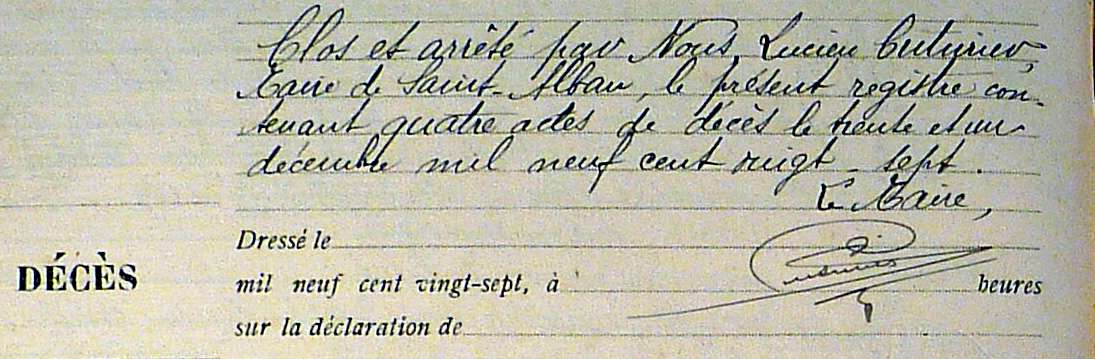 Clos et arrêté par Nous, Lucien Cuturier,
Maire de Saint-Alban, le présent registre con-
tenant quatre actes de décès le trente et un
décembre mil neuf cent vingt-sept.
Le Maire,
Dressé le
DÉCÈS
mil neuf cent vingt-sept, à heures
sur la déclaration de